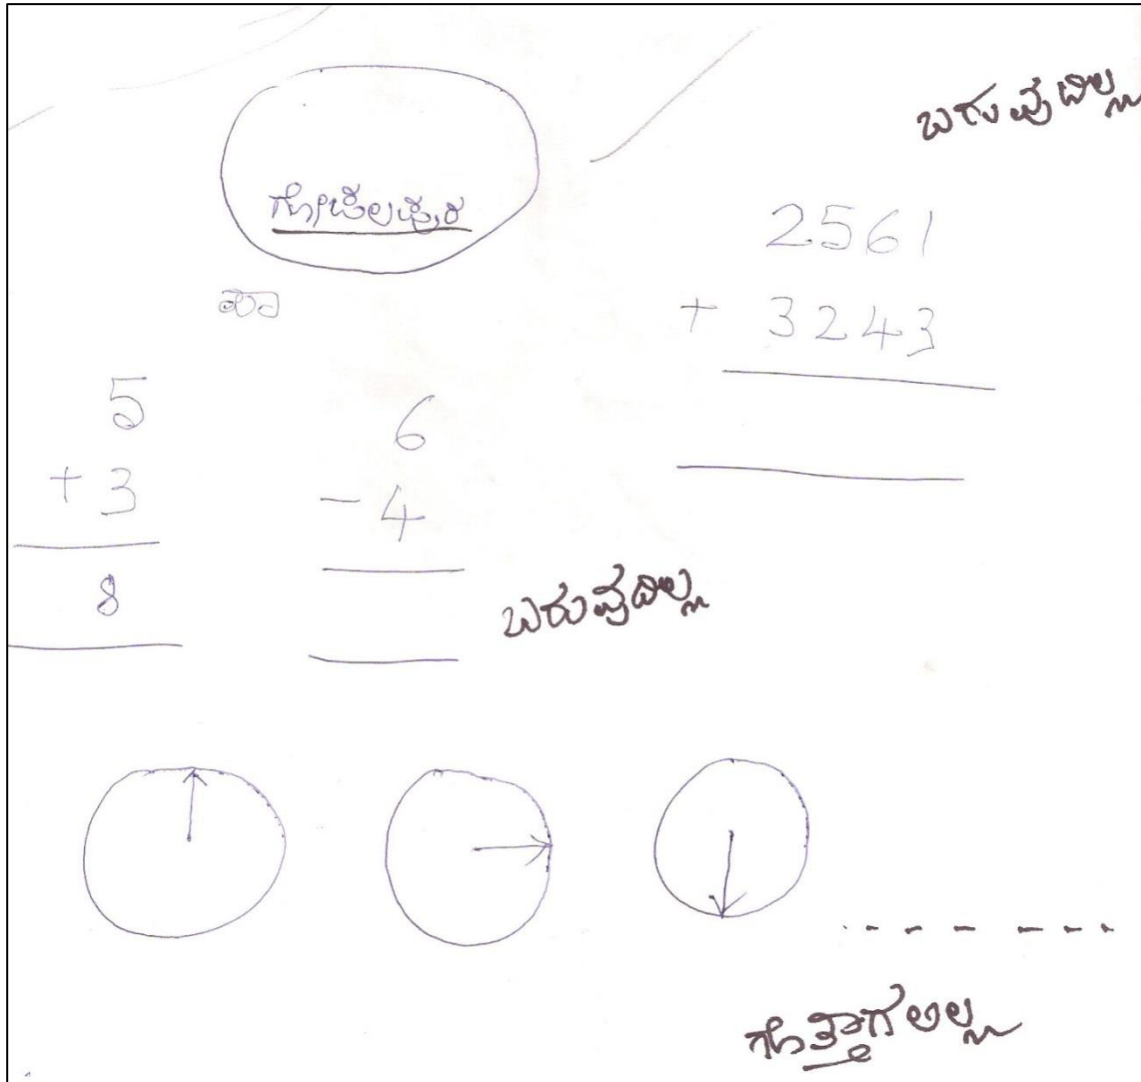 ಬರುವುದಿಲ್ಲ
2561
+ 3243
5
+ 3
8
6
- 4
ಬರುವುದಿಲ್ಲ
ಗೊತ್ತಾಗಲಿಲ್ಲ